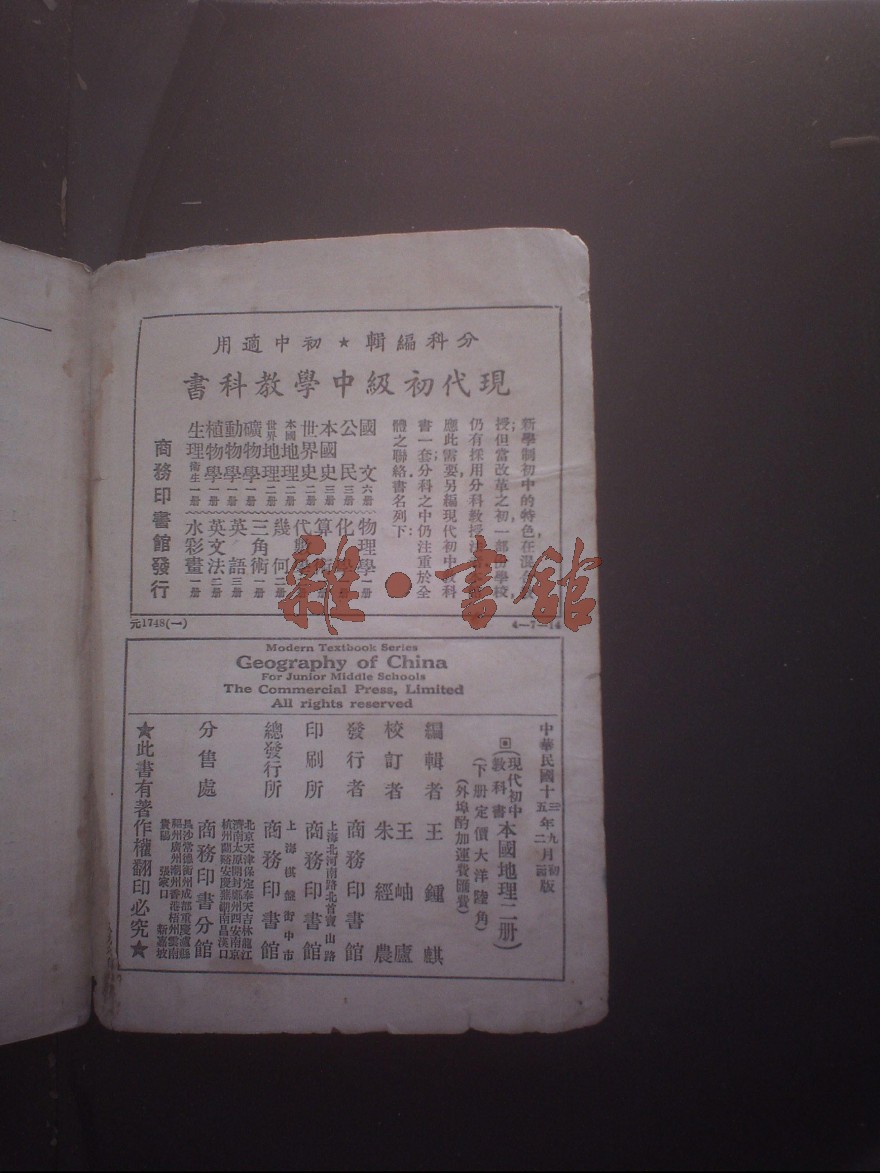 分科編輯★初中適用
現代初級中學教科書
新學制初中的特色,在混合教
授;但當改革之初,一部份學校,
仍有採用分科教授
應此需要,另編現代初中教科
書一套;分科之中仍注重於全
體之聯絡書名列下:
國文 六册
公民 三册
本國史 三册
世界史 二册
本國地理 二册
世界地理 二册
礦物學 一册
動物學 一册
植物學 一册
生理衛生 一册
物理學 一册
化學
算術
代數
幾何
三角術 一册
英語 三册
英文法 二册
水彩畫 一册
商務印書館發行
雜·書館
元1748(一)
4—7—14
Modern Textbook Series
Geography of China
For Junior Middle Schools
The Commercial Press, Limited
All rights reserved
中華民國十三年九月初版
五 二
(現代初中教科書本國地理二册)
(下册定價大洋陸角)
(外埠酌加運費匯費)
編輯者 王鍾麒
校訂者 王岫廬 朱經農
發行者 商務印書館
上海北河南路北首寶山路
印刷所 商務印書館
上海棋盤街中市
總發行所 商務印書館
北京天津保定奉天吉林龍江
濟南太原開封鄭州西安南京
杭州蘭谿安慶蕪湖南昌漢口
分售處 商務印書分館
長沙常德衡州成都重慶瀘縣
福州廣州潮州香港梧州雲南
貴陽 張家口 新嘉坡
★此書有著作權翻印必究★